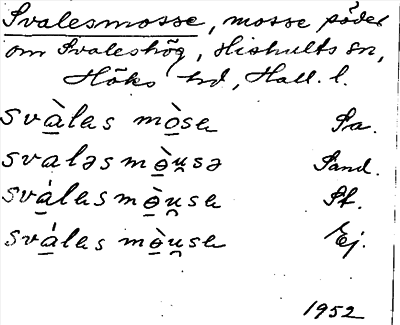 Svalesmosse, mosse söder
om Svaleshög, Hishults sn,
Höks hd, Hall. l.
svà̲las mò̲sa Sa.
svaləs mɵ̲̀u̯sə Sand.
svá̲lasmɵ̲̀u̯sa St.
svá̲las mɵ̲̀u̯sa Ej.
1952